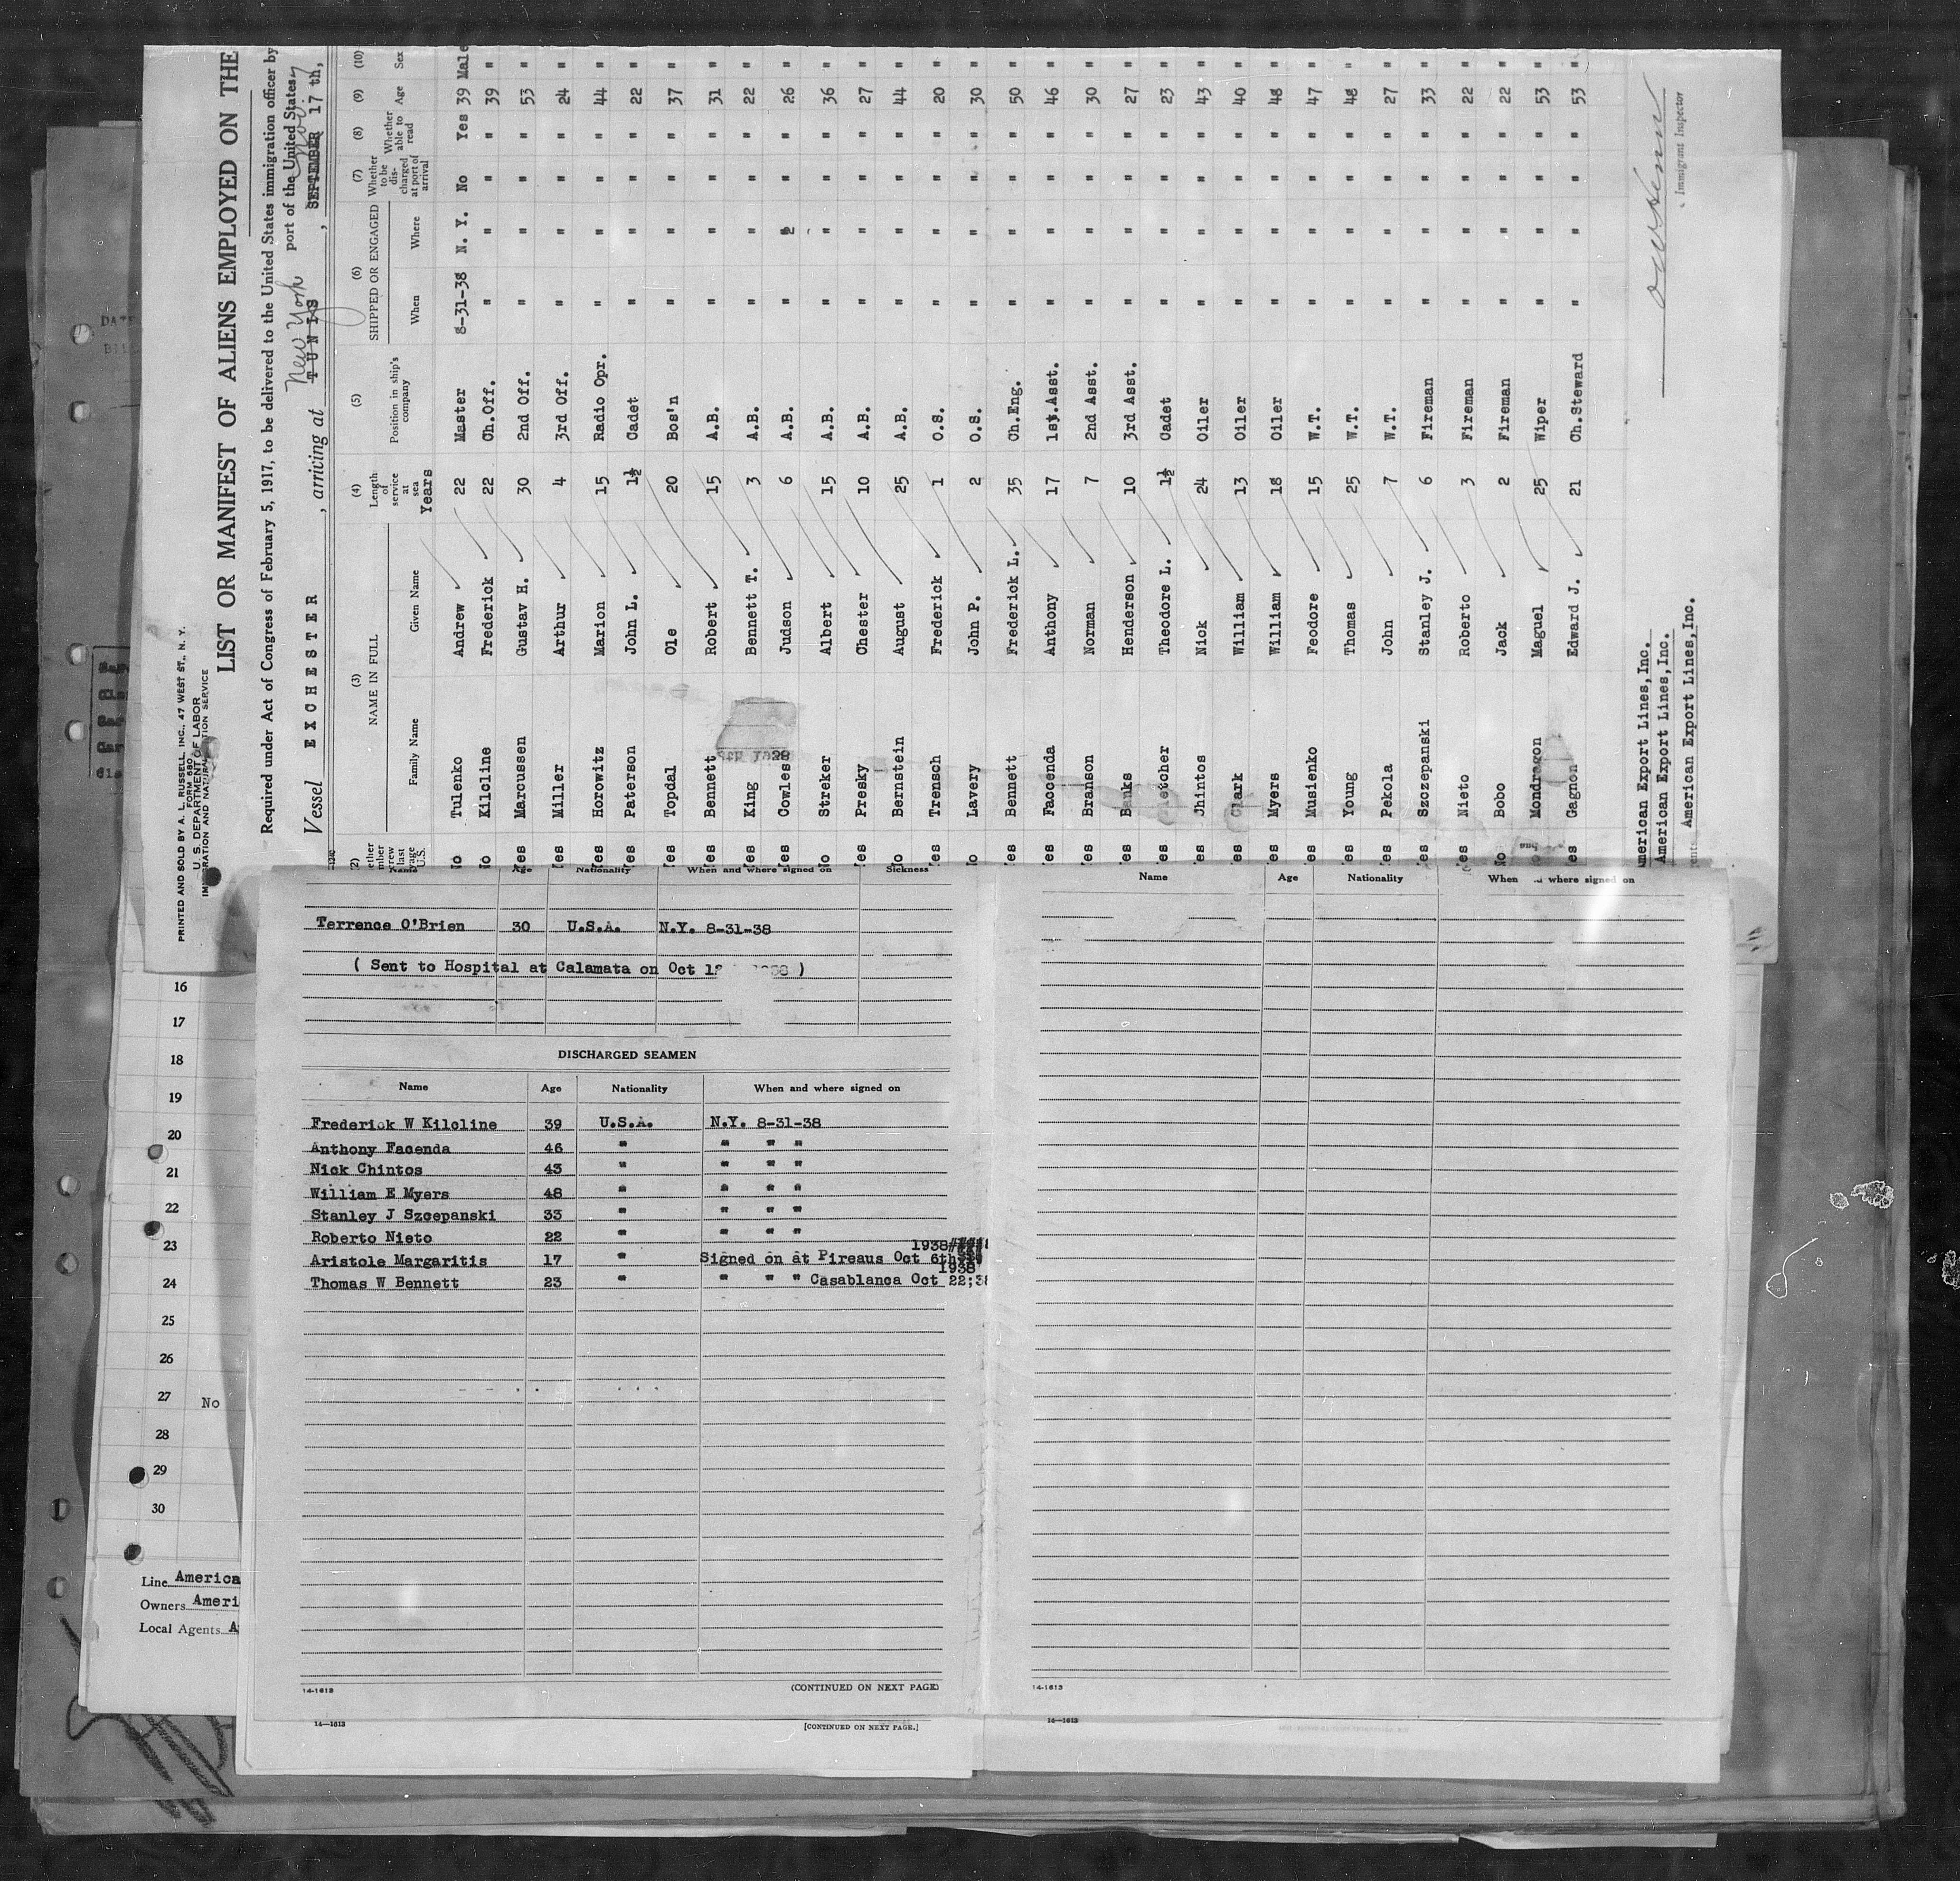 PRINTED AND SOLD BY A. L. RUSSELL, INC., 47 WEST ST., N. Y.
FORM 690
U. S. DEPARTMENT OF LABOR
IMMIGRATION AND NATURALIZATION SERVICE
LIST OR MANIFEST OF ALIENS EMPLOYED ON THE
Required under Act of Congress of February 5, 1917, to be delivered to the United States immigration officer by
port of the United States
Vessel EXCHESTER , arriving at TUNIS New York , SEPTEMBER Nov 17 th,
(3) (4) (5) (6) (7) (8) (9) (10)
NAME IN FULL Length of service at sea Position in ship's company SHIPPED OR ENGAGED Whether to be discharged at port of arrival Whether able to read Age Sex
Family Name Given Name Years When Where
No Tulenko Andrew 22 Master 8-31-38 N. Y. No Yes 39 Male
No Kilcline Frederick 22 Ch.Off. " " " " 39 "
Yes Marcussen Gustav H. 30 2nd Off. " " " " 53 "
Yes Miller Arthur 4 3rd Off. " " " " 24 "
Yes Horowitz Marion 15 Radio Opr. " " " " 44 "
Yes Paterson John L. 1½ Cadet " " " " 22 "
Yes Topdal Ole 20 Bos'n " " " " 37 "
Yes Bennett Robert 15 A.B. " " " " 31 "
Yes King Bennett T. 3 A.B. " " " " 22 "
Yes Cowles Judson 6 A.B. " " " " 26 "
No Streker Albert 15 A.B. " " " " 36 "
Yes Presky Chester 10 A.B. " " " " 27 "
No Bernstein August 25 A.B. " " " " 44 "
Yes Trensch Frederick 1 O.S. " " " " 20 "
No Lavery John P. 2 O.S. " " " " 30 "
Yes Bennett Frederick L. 35 Ch.Eng. " " " " 50 "
Yes Faccenda Anthony 17 1st.Asst. " " " " 46 "
Yes Branson Norman 7 2nd Asst. " " " " 30 "
Yes Banks Henderson 10 3rd Asst. " " " " 27 "
Yes etcher Theodore L. 1½ Cadet " " " " 23 "
Yes Jhintos Nick 24 Oiler " " " " 43 "
Yes Clark William 13 Oiler " " " " 40 "
Yes Myers William 18 Oiler " " " " 48 "
Yes Musienko Feodore 15 W.T. " " " " 47 "
Yes Young Thomas 25 W.T. " " " " 48 "
Yes Pekola John 7 W.T. " " " " 27 "
Yes Szczepanski Stanley J. 6 Fireman " " " " 33 "
Yes Nieto Roberto 3 Fireman " " " " 22 "
No Bobo Jack 2 Fireman " " " " 22 "
Mondragon Maguel 25 Wiper " " " " 53 "
Yes Gagnon Edward J. 21 Ch.Steward " " " " 53 "
American Export Lines,Inc.
American Export Lines,Inc.
American Export Lines,Inc.
Immigrant Inspector
Name Age Nationality When and where signed on Sickness
Terrence O'Brien 30 U.S.A. N.Y. 8-31-38
( Sent to Hospital at Calamata on Oct )
DISCHARGED SEAMEN
Name Age Nationality When and where signed on
Frederick W Kilcline 39 U.S.A. N.Y. 8-31-38
Anthony Facenda 46 " " " "
Nick Chintos 43 " " " "
William E Myers 48 " " " "
Stanley J Szcepanski 33 " " " "
Roberto Nieto 22 " " " "
1938
Aristole Margaritis 17 " Signed on at Pireaus Oct 6th
1938
Thomas W Bennett 23 " " " " Casablanca Oct 22;38
14-1613 (CONTINUED ON NEXT PAGE)
14—1613 [CONTINUED ON NEXT PAGE.]
Name Age Nationality When and where signed on
14-1613
14—1613
16
17
18
19
20
21
22
23
24
25
26
27 No
28
29
30
Line America
Owners Ameri
Local Agents A